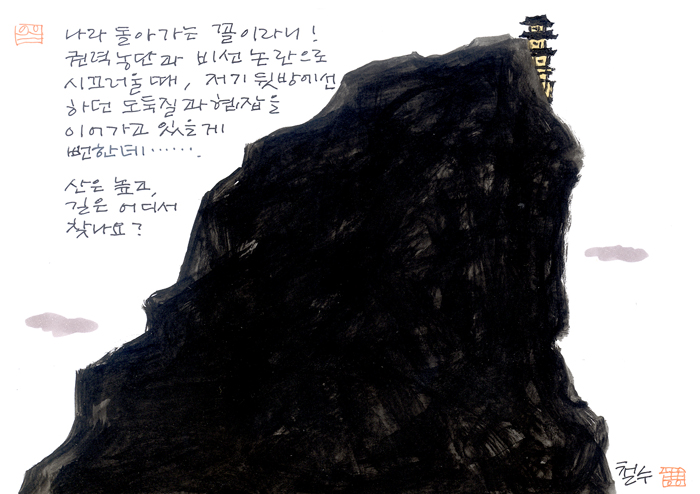 나라 돌아가는 꼴이라니!
권력농단과 비선 논란으로
시끄러울 때, 저기 뒷방에선
하던 도둑질과 협잡을
이어가고 있을게
뻔한데…….
산은 높고,
길은 어디서
찾나요?
철수